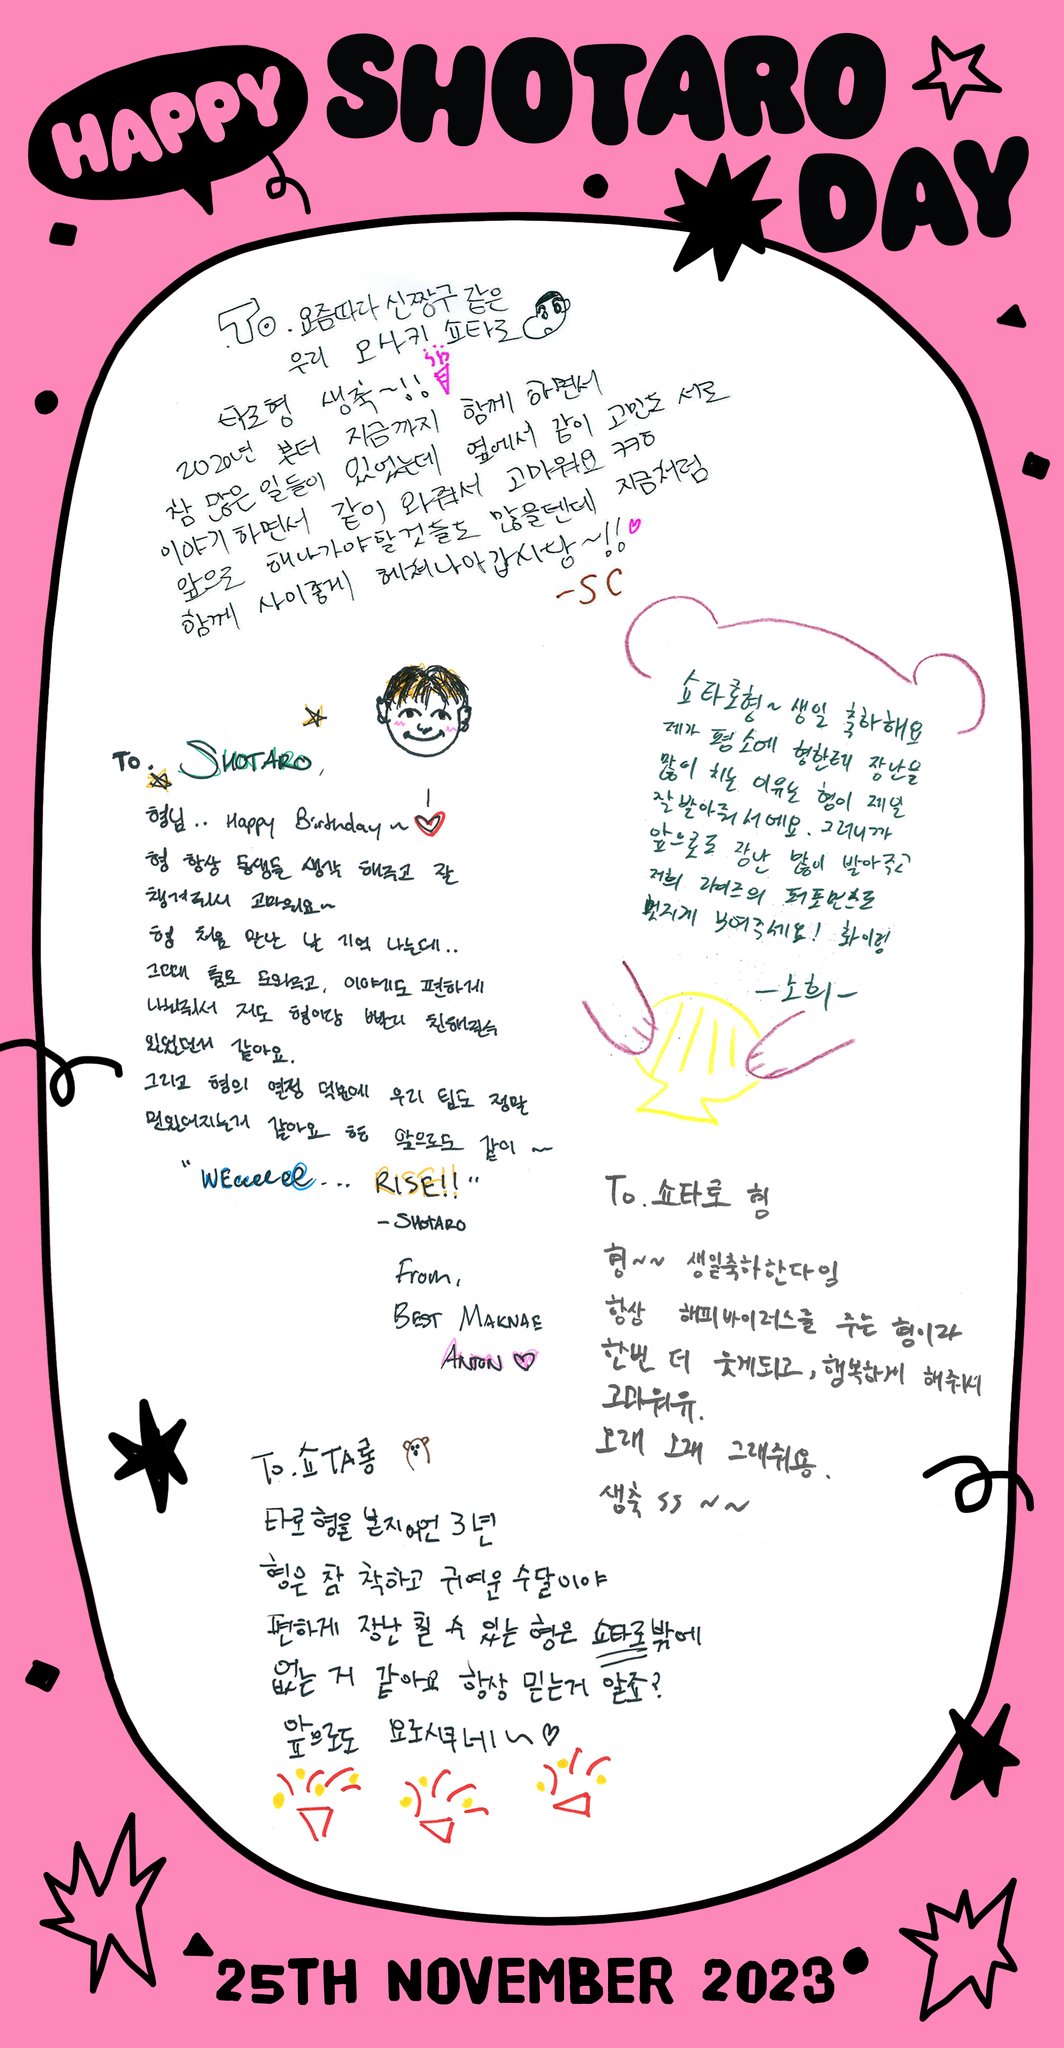 HAPPY
SHOTARO
DAY
To. 요즘따라 신짱구 같은
우리 오사키 쇼타로
타로형 생축~!!
2020년 부터 지금까지 함께 하면서
참 많은 일들이 있었는데 옆에서 같이 고민도 서로
이야기 하면서 같이 와줘서 고마워요 ㅋㅋㅎ
앞으로 해나가야할것들도 많을텐데 지금처럼
함께 사이좋게 헤쳐나아갑시당~!!
-SC
쇼타로형~ 생일 축하해요
제가 평소에 형한테 장난을
많이 치는 이유는 형이 제일
잘 받아줘서예요. 그러니까
앞으로도 장난 많이 받아주고
저희 라이즈의 퍼포먼스로
멋지게 보여주세요! 화이팅
To. SHOTARO,
형님.. Happy Birthday~
형 항상 동생들 생각 해주고 잘
챙겨줘서 고마워요~
형 처음 만난 날 기억 나는데..
그때 춤도 도와주고, 이야기도 편하게
나눠줘서 저도 형이랑 빨리 친해질수
있었던거 같아요.
그리고 형의 열정 덕분에 우리 팀도 정말
멋있어지는거 같아요 형 앞으로도 같이 ~
"WEeeeee... RISE!!"
- SHOTARO
From,
BEST MAKNAE
ANTON
To. 쇼타로 형
형~~ 생일축하한다잉
항상 해피바이러스를 주는 형이라
한번 더 웃게되고, 행복하게 해줘서
고마워유.
오래 오래 그래줘용.
생축 ss ~~
To. 쇼TA롱
타로형을 본지 어언 3년
형은 참 착하고 귀여운 수달이야
편하게 장난 칠 수 있는 형은 쇼타로밖에
없는 거 같아요 항상 믿는거 알죠?
앞으로도 요로시쿠네~
25TH NOVEMBER 2023